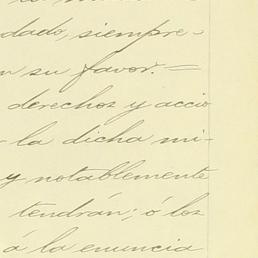 dado, siempre-
n su favor.=
derechos y accio
la dicha mi-
y notablemente
tendrán; ó los
á la enuncia